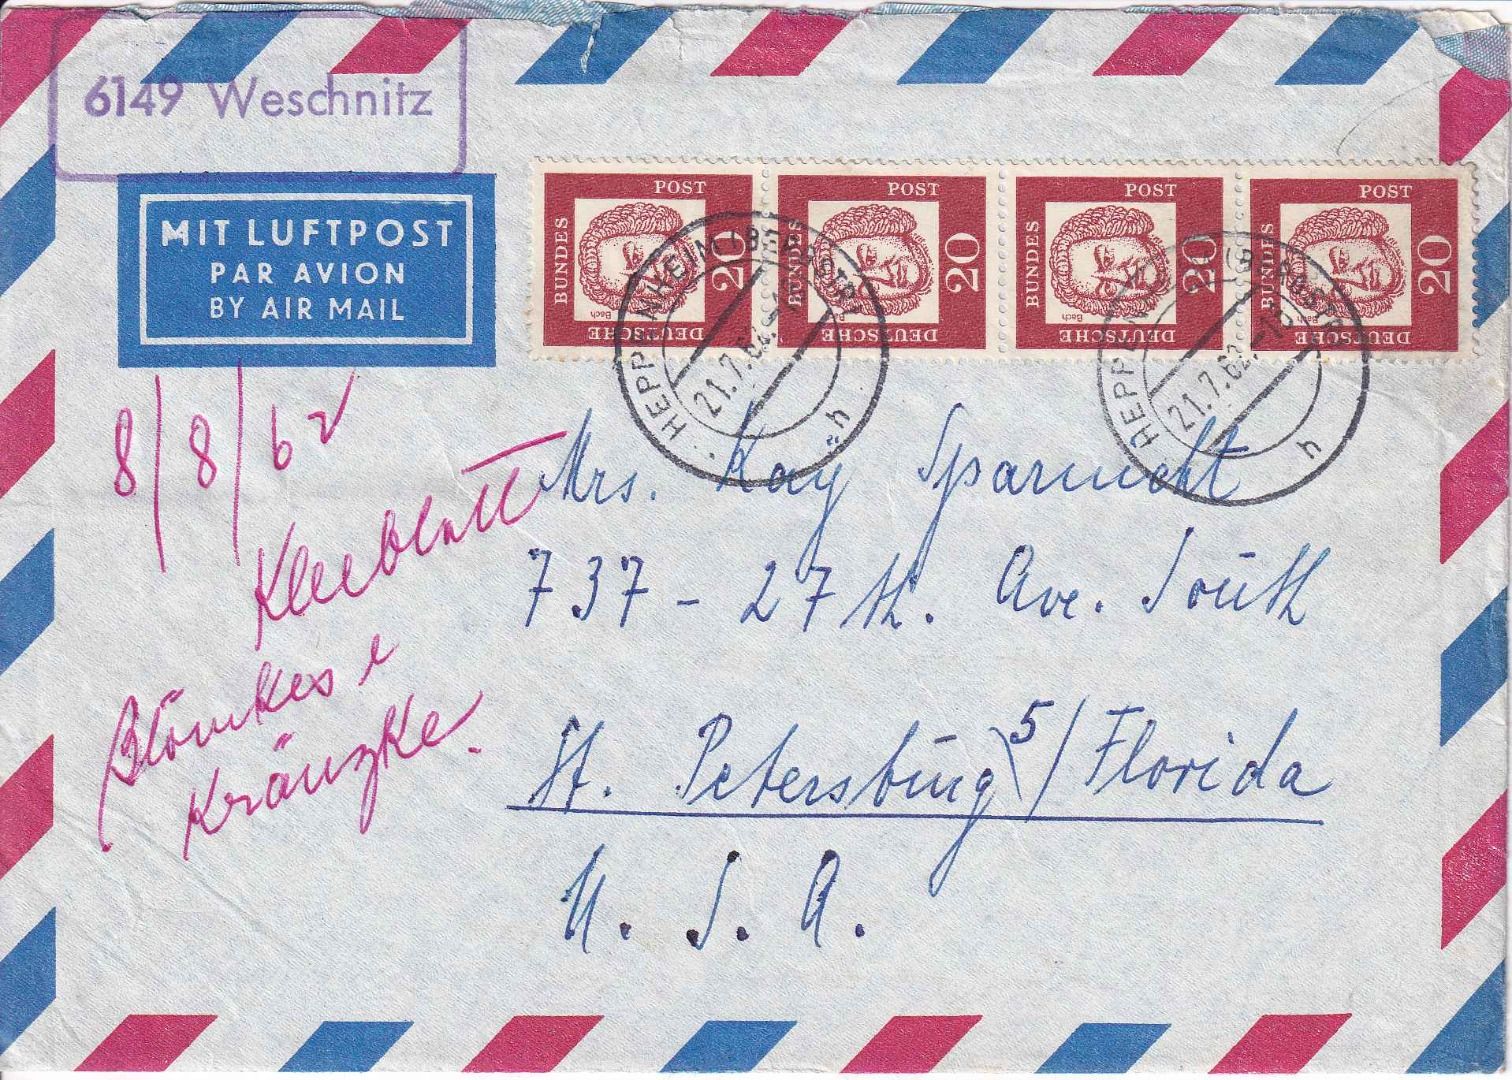 6149 Weschnitz
MIT LUFTPOST
PAR AVION
BY AIR MAIL
DEUTSCHE BUNDES POST 20 Bach
DEUTSCHE BUNDES POST 20 Bach
DEUTSCHE BUNDES POST 20 Bach
DEUTSCHE BUNDES POST 20 Bach
HEPPENHEIM (BERGSTR
21.7.62
h
HEPPENHEIM (BERGSTR
21.7.62
h
8/8/62
Kleeblatt
Kränzke.
Mrs. Kay
737 - 27th. Ave. South
St. Petersburg 5/Florida
U. S. A.